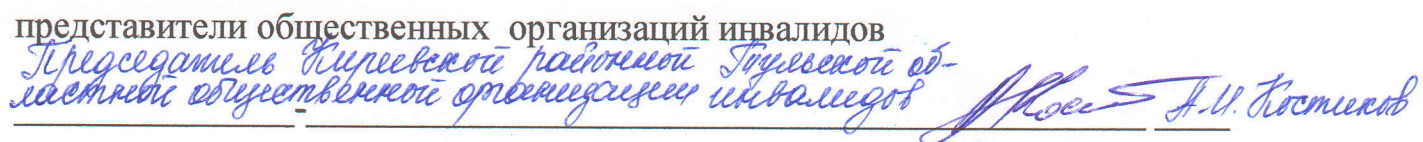 представители общественных организаций инвалидов
Председатель Киреевской районной Тульской об-
ластной общественной организации инвалидов А.И. Костиков